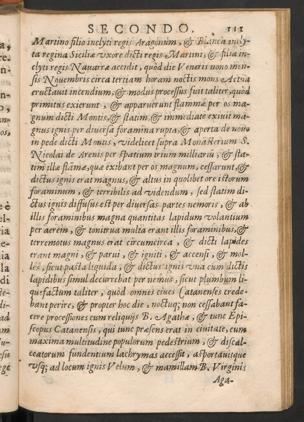 SECONDO. 111
Martino filio inclyti regis Aragonum, & Blanca inclyta
regina Siciliæ vxore dicti regis Martini, & filia inclyti
regis Nauarræ accidit, quòd die Veneris nono mensis
Nouembris circa tertiam horam noctis mons Aetna
eructauit incendium, & modus processus fuit taliter, quòd
primitus exierunt, & apparuerunt flammæ per os magnum
dicti Montis, & statim, & immediate exiuit magnus
ignis per diuersa foramina rupta, & aperta de nouo
in pede dicti Montis, videlicet supra Monasterium S.
Nicolai de Arenis per spatium trium milliariũ, & statim
illæ flammæ, quæ exibant per os magnum, cessarunt, &
dictus ignis erat magnus, & altus in quolibet ore istorum
foraminum, & terribilis ad videndum, sed statim dictus
ignis diffusus est per diuersas partes nemoris, & ab
illis foraminibus magna quantitas lapidum volantium
per aerem, & tonitrua multa erant illis foraminibus, &
terremotus magnus erat circumcirca, & dicti lapides
erant magni, & parui, & igniti, & accensi, & molles,
sicut pasta liquida, & dictus ignis vna cum dictis
lapidibus simul decurrebat per nemus, sicut plumbum liquefactum
taliter, quòd omnes ciues Catanenses credebant
perire, & propter hoc die, noctuq; non cessabant facere
processiones cum reliquijs B. Agathæ, & tunc Episcopus
Catanensis, qui tunc præsens erat in ciuitate, cum
maxima multitudine populorum pedestrium, & discalceatorum
fundentium lachrymas accessit, asportauitque
vsq; ad locum ignis Velum, & mamillam B. Virginis
Aga-